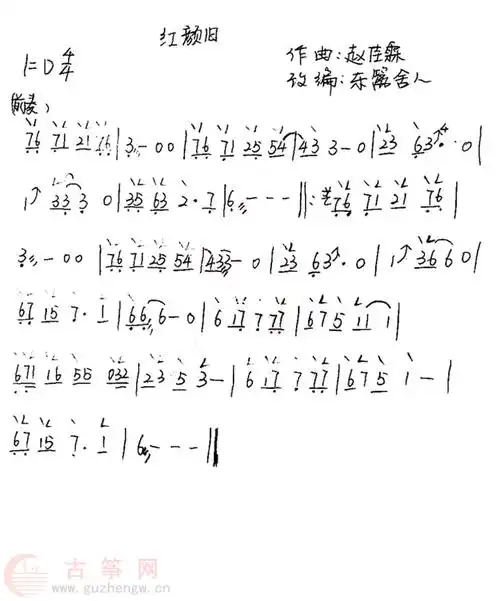 红颜旧
1=D 4/4
作曲:赵佳霖
改编:东篱舍人
(前奏)
76 71 21 76 | 3 - 0 0 | 76 71 25 54 | 43 3 - 0 | 23 63 · 0 |
1 33 3 0 | 35 63 2 · 7 | 6 - - - ‖: 76 71 21 76 |
3 - 0 0 | 76 71 25 54 | 433 - 0 | 23 63 · 0 | 1 36 6 0 |
67 15 7 · 1 | 66 6 - 0 | 6 17 7 77 | 67 5 11 1 |
671 16 55 032 | 23 5 3 - | 6 17 7 77 | 67 5 1 - |
67 15 7 · 1 | 6 - - - ‖
古筝网
www.guzhengw.cn